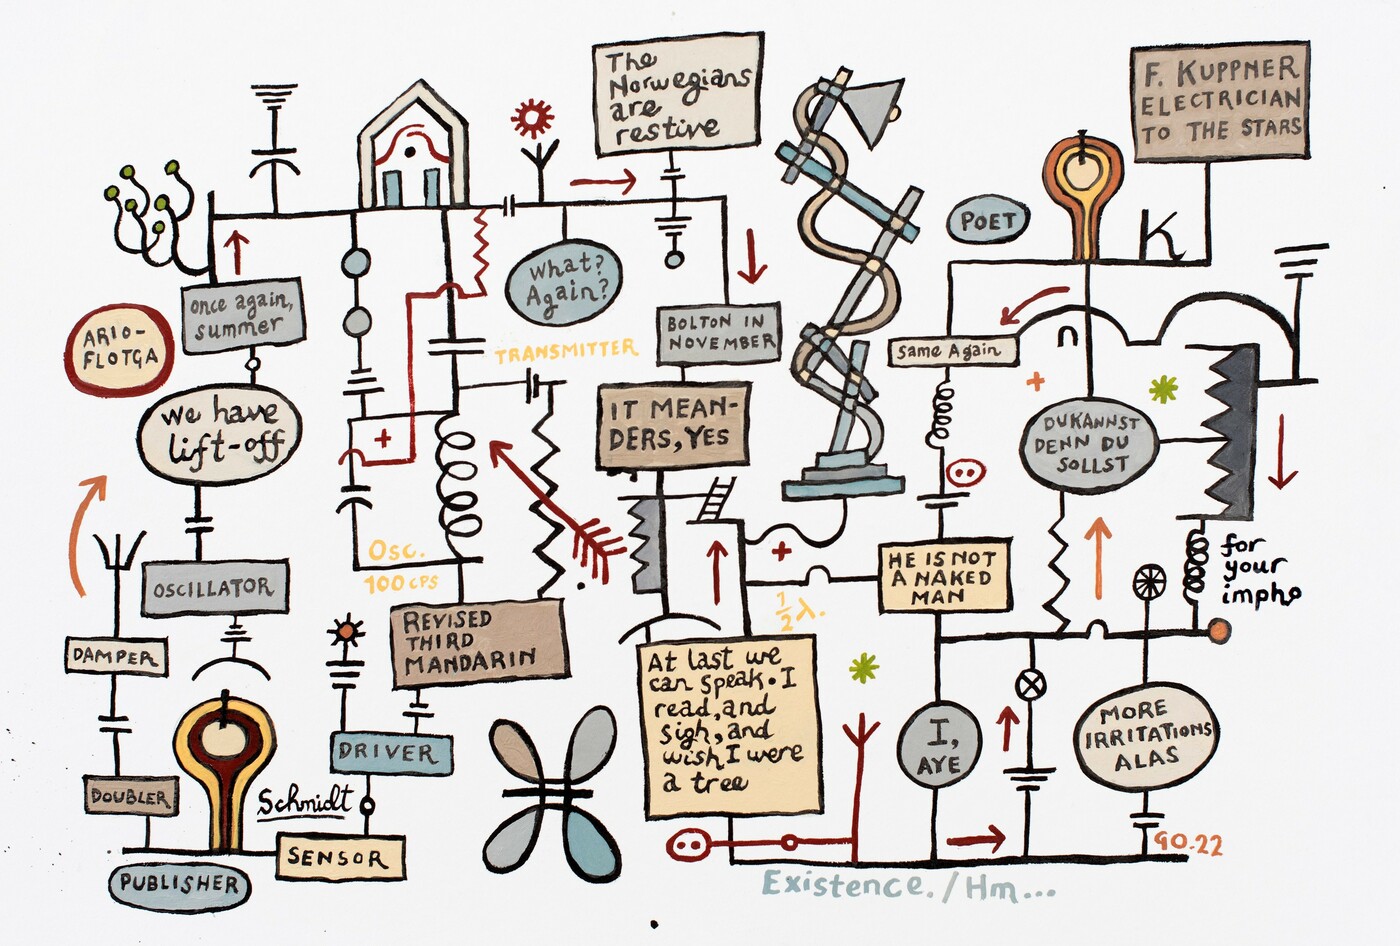 The
Norwegians
are
restive
F. KUPPNER
ELECTRICIAN
TO THE STARS
POET
K
What?
Again?
once again,
summer
ARIO-
FLOTGA
BOLTON IN
NOVEMBER
TRANSMITTER
Same Again
n
we have
lift-off
IT MEAN-
DERS, YES
DU KANNST
DENN DU
SOLLST
Osc.
100 CPS
for
your
impho
OSCILLATOR
HE IS NOT
A NAKED
MAN
½λ.
REVISED
THIRD
MANDARIN
DAMPER
At last we
can speak. I
read, and
sigh, and
wish I were
a tree
DRIVER
I,
AYE
MORE
IRRITATIONS
ALAS
DOUBLER
Schmidt
SENSOR
PUBLISHER
GO.22
Existence./Hm...